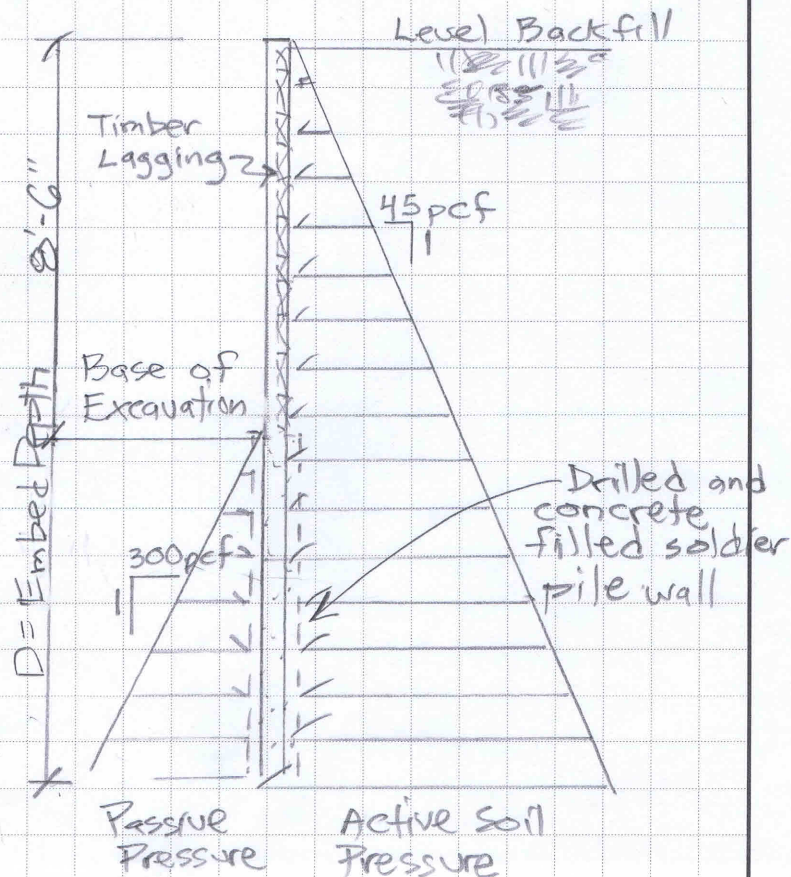 Level Backfill
Timber
Lagging
8'-6"
45pcf
1
Base of
Excavation
D = Embed Depth
300pcf
1
Drilled and
concrete
filled soldier
pile wall
Passive
Pressure
Active Soil
Pressure